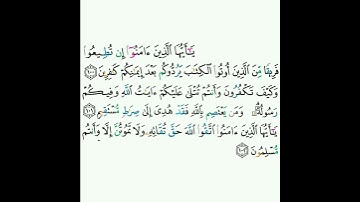 يَٰٓأَيُّهَا ٱلَّذِينَ ءَامَنُوٓا۟ إِن تُطِيعُوا۟
فَرِيقًا مِّنَ ٱلَّذِينَ أُوتُوا۟ ٱلْكِتَٰبَ يَرُدُّوكُم بَعْدَ إِيمَٰنِكُمْ كَٰفِرِينَ ١٠٠
وَكَيْفَ تَكْفُرُونَ وَأَنتُمْ تُتْلَىٰ عَلَيْكُمْ ءَايَٰتُ ٱللَّهِ وَفِيكُمْ
رَسُولُهُۥ وَمَن يَعْتَصِم بِٱللَّهِ فَقَدْ هُدِىَ إِلَىٰ صِرَٰطٍ مُّسْتَقِيمٍ ١٠١
يَٰٓأَيُّهَا ٱلَّذِينَ ءَامَنُوا۟ ٱتَّقُوا۟ ٱللَّهَ حَقَّ تُقَاتِهِۦ وَلَا تَمُوتُنَّ إِلَّا وَأَنتُم
مُّسْلِمُونَ ١٠٢